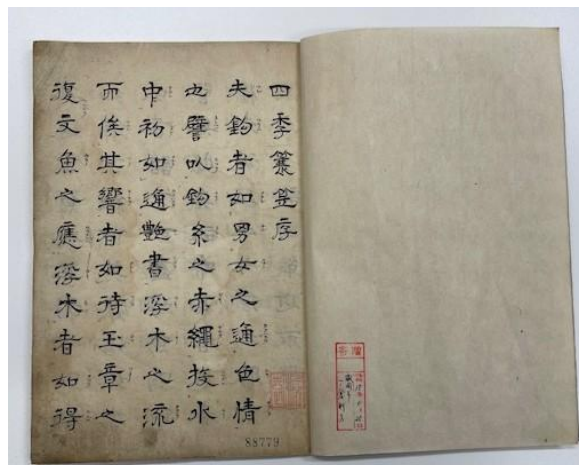 四季簑笠序
夫鈎者如男女之通色情
也譬以鈎糸之赤繩投水
中初如通艶書浮木之流
而俟其響者如待玉章之
復文魚之應浮木者如得
88779